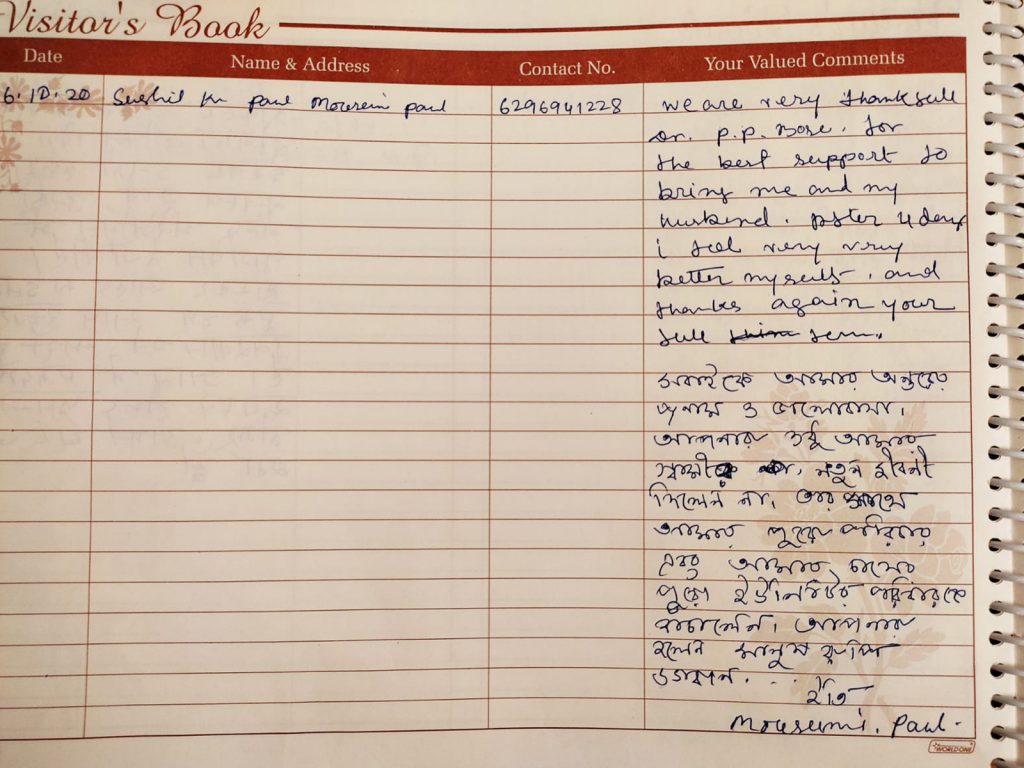 Visitor's Book
Date Name & Address Contact No. Your Valued Comments
6.10.20 Sushil Kr paul Mousemi paul 6296941228 we are very thankfull
Dr. P.P. Bose. for
the best support to
bring me and my
husband. After 4 days
i feel very very
better myself. and
thanks again your
full team.
সবাইকে আমার অন্তরের
প্রনাম ও ভালোবাসা।
আপনারা শুধু আমার
স্বামীকে নতুন জীবনী
দিলেন না, তার সাথে
আমার পুরো পরিবার
এবং আমার
পুরো ইউনিটের পরিবারকে
বাচালেন। আপনারা
হলেন মানুষ রুপি
ভগবান. . .
ইতি
Mousumi. Paul.
WORLDONE